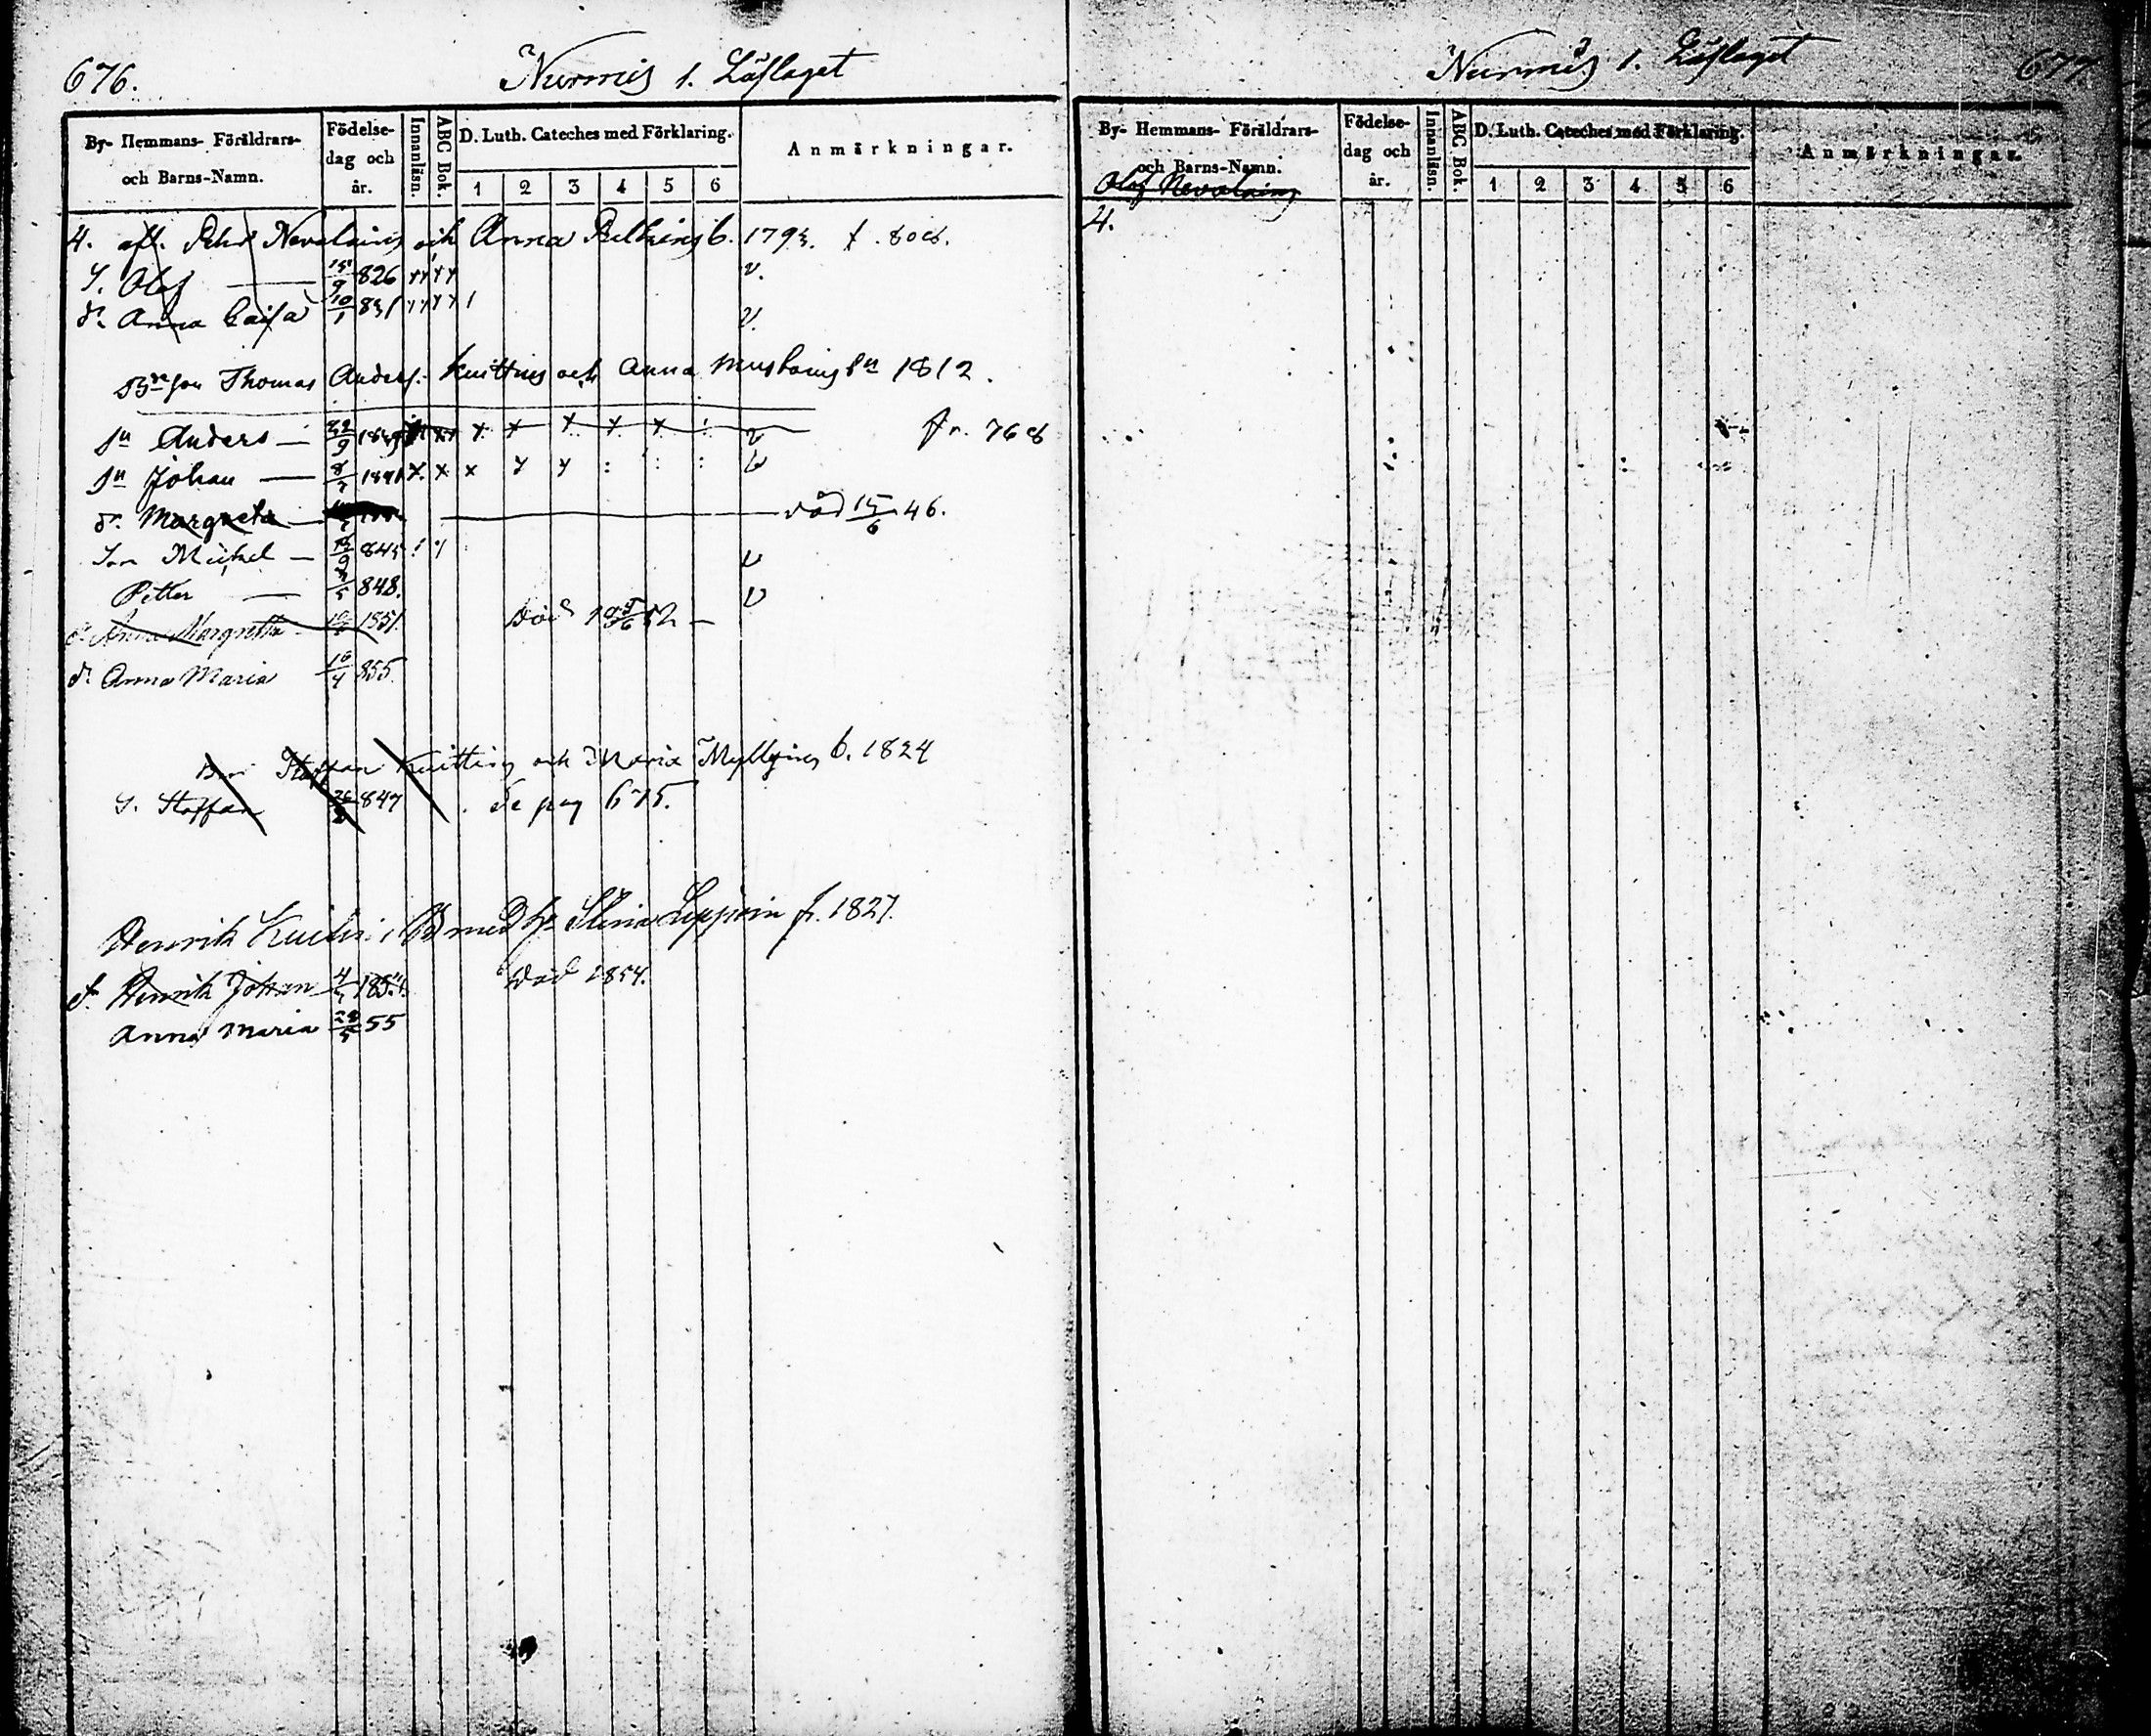 676.
Nurmis 1. Läslaget
By- Hemmans- Föräldrars- och Barns-Namn.
Födelse- dag och år.
Innanläsn.
ABC Bok.
D. Luth. Cateches med Förklaring.
1 2 3 4 5 6
Anmärkningar.
4. afl. Petter Nevalaing och Anna b. 1793. f. 808.
S. Olof — 15/9 826 v.
dr Anna Caisa 10/1 831 v.
Thomas Anders. Kuitting och Anna Mustoing 1812.
sn Anders — fr. 768
sn Johan —
dr. Margreta — död 15/6 46.
Son Michel — 845
Petter — 848.
dr Anna Margretha 1851. död 52 —
dr Anna Maria 16/4 855.
Staffan Kuitting och Maria Myllying b. 1824
S. Staffan 847 Se pag 675.
Henrik med Leppoin f. 1827.
S. Henrik Johan 185 död 1854.
Anna Maria 55
Nurmis 1. Läslaget
677
By- Hemmans- Föräldrars- och Barns-Namn.
Födelse- dag och år.
Innanläsn.
ABC Bok.
D. Luth. Cateches med Förklaring.
1 2 3 4 5 6
Anmärkningar.
Olof Nevalaing
4.